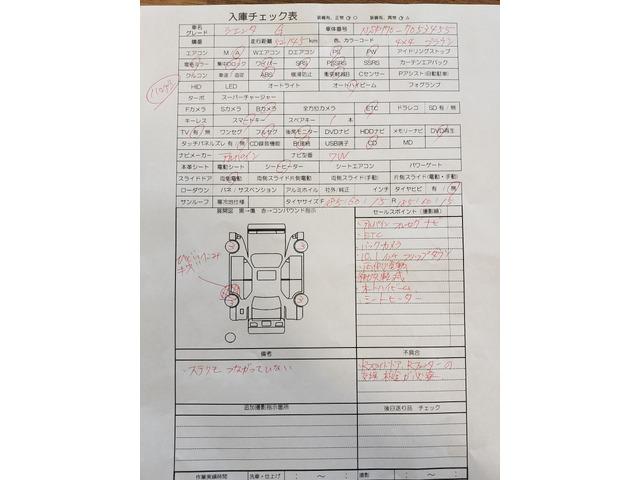 入庫チェック表
装備有、正常 ○ 装備有、異常 △
車名
グレード
シエンタ G
車体番号
NSP170-7053455
機番
走行距離
km
色、カラーコード
4x4 ブラウン
エアコン M / A Wエアコン Dエアコン PS PW アイドリングストップ
電格ミラー 集中ロック ワイパー SRS PSSRS SSRS カーテンエアバック
クルコン 車速 / 追従 ABS 横滑防止 衝突軽減B Cセンサー Pアシスト(自動駐車)
HID LED オートライト オートハイビーム フォグランプ
ハロゲン
ターボ スーパーチャージャー
Fカメラ Sカメラ Bカメラ 全方位カメラ ETC ドラレコ SD 有 / 無
キーレス スマートキー スペアキー 1 本
TV 有 / 無 ワンセグ フルセグ 後席モニター DVDナビ HDDナビ メモリーナビ DVD再生
タッチパネルズレ 有 / 無 CD録音機能 Bt接続 USB端子 CD MD
ナビメーカー アルパイン ナビ型番 7W
本革シート 電動シート シートヒーター シートエアコン パワーゲート
スライドドア 両側電動 両側スライド片側電動 両側スライド(手動) 片側スライド(電動・手動)
ローダウン バネ / サスペンション アルミホイール 社外 / 純正 インチ タイヤヒビ 有 / 無
サンルーフ 寒冷地仕様 タイヤサイズ F 185/60/15 R 185/60/15
展開図 黒→傷 赤→コンパウンド指示
セールスポイント (撮影線)
・アルパイン フルセグ ナビ
・ETC
・バックカメラ
・10.1インチ フリップダウン
・両側電動
・衝突軽減
・オートハイビーム
・シートヒーター
備考
不具合
・ステリモ つながっていない
・Rスライドドア、Rフェンダーの
追加撮影指示箇所
後日送り品 チェック
作業実績時間 洗車・仕上げ : ～ : 撮影 : ～ :